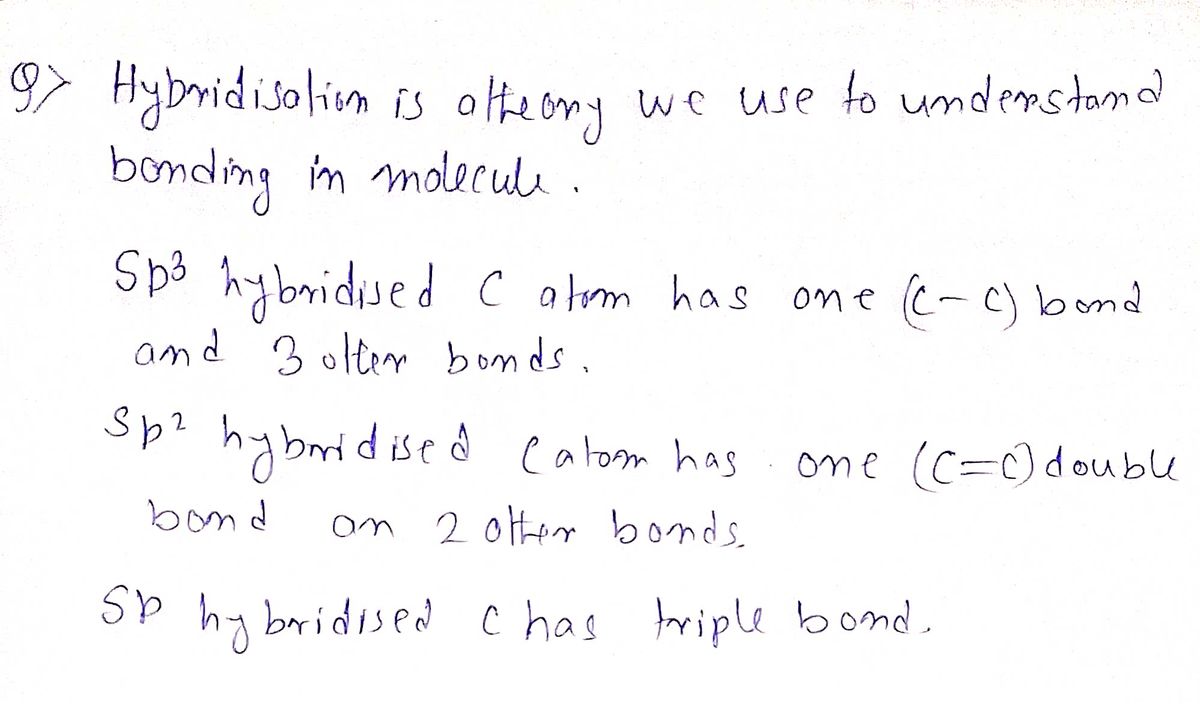 Q> Hybridisation is a theory we use to understand
bonding in molecule.
Sp3 hybridised C atom has one (C-C) bond
and 3 other bonds.
Sp2 hybridised C atom has one (C=C) double
bond an 2 other bonds.
Sp hybridised C has triple bond.